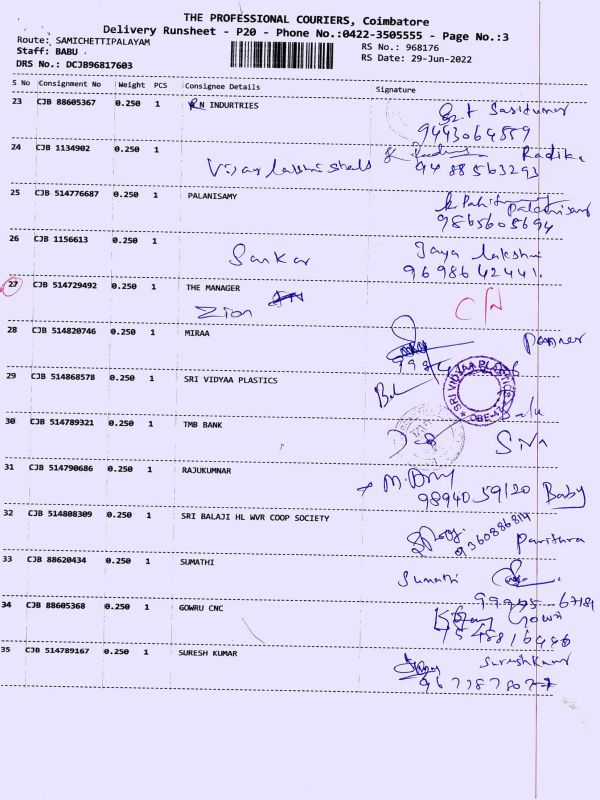 THE PROFESSIONAL COURIERS, Coimbatore
Delivery Runsheet - P20 - Phone No.:0422-3505555 - Page No.:3
Route: SAMICHETTIPALAYAM
Staff: BABU
DRS No.: DCJB96817603
RS No.: 968176
RS Date: 29-Jun-2022
S No Consignment No Weight PCS Consignee Details Signature
23 CJB 88605367 0.250 1 RN INDURTRIES Sasikumar
9443064559
24 CJB 1134902 0.250 1 Radika
9488563293
25 CJB 514776687 0.250 1 PALANISAMY Palanisamy
9865605694
26 CJB 1156613 0.250 1 Sankar Jaya lakshmi
9698642441.
27 CJB 514729492 0.250 1 THE MANAGER C/N
Zion
28 CJB 514820746 0.250 1 MIRAA
29 CJB 514868578 0.250 1 SRI VIDYAA PLASTICS Balu
SRI VIDYAA PLASTICS
30 CJB 514789321 0.250 1 TMB BANK
31 CJB 514790686 0.250 1 RAJUKUMNAR
98940 59120 Baby
32 CJB 514808309 0.250 1 SRI BALAJI HL WVR COOP SOCIETY
9360886814 Pavithra
33 CJB 88620434 0.250 1 SUMATHI Sumathi
34 CJB 88605368 0.250 1 GOWRU CNC Gowri
35 CJB 514789167 0.250 1 SURESH KUMAR Sureshkumar
9677878077